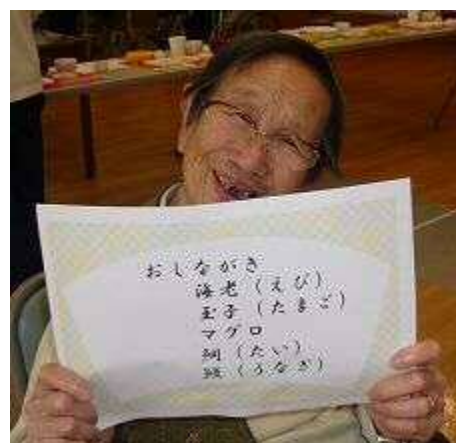 おしながき
海老（えび）
玉子（たまご）
マグロ
鯛（たい）
鰻（うなぎ）